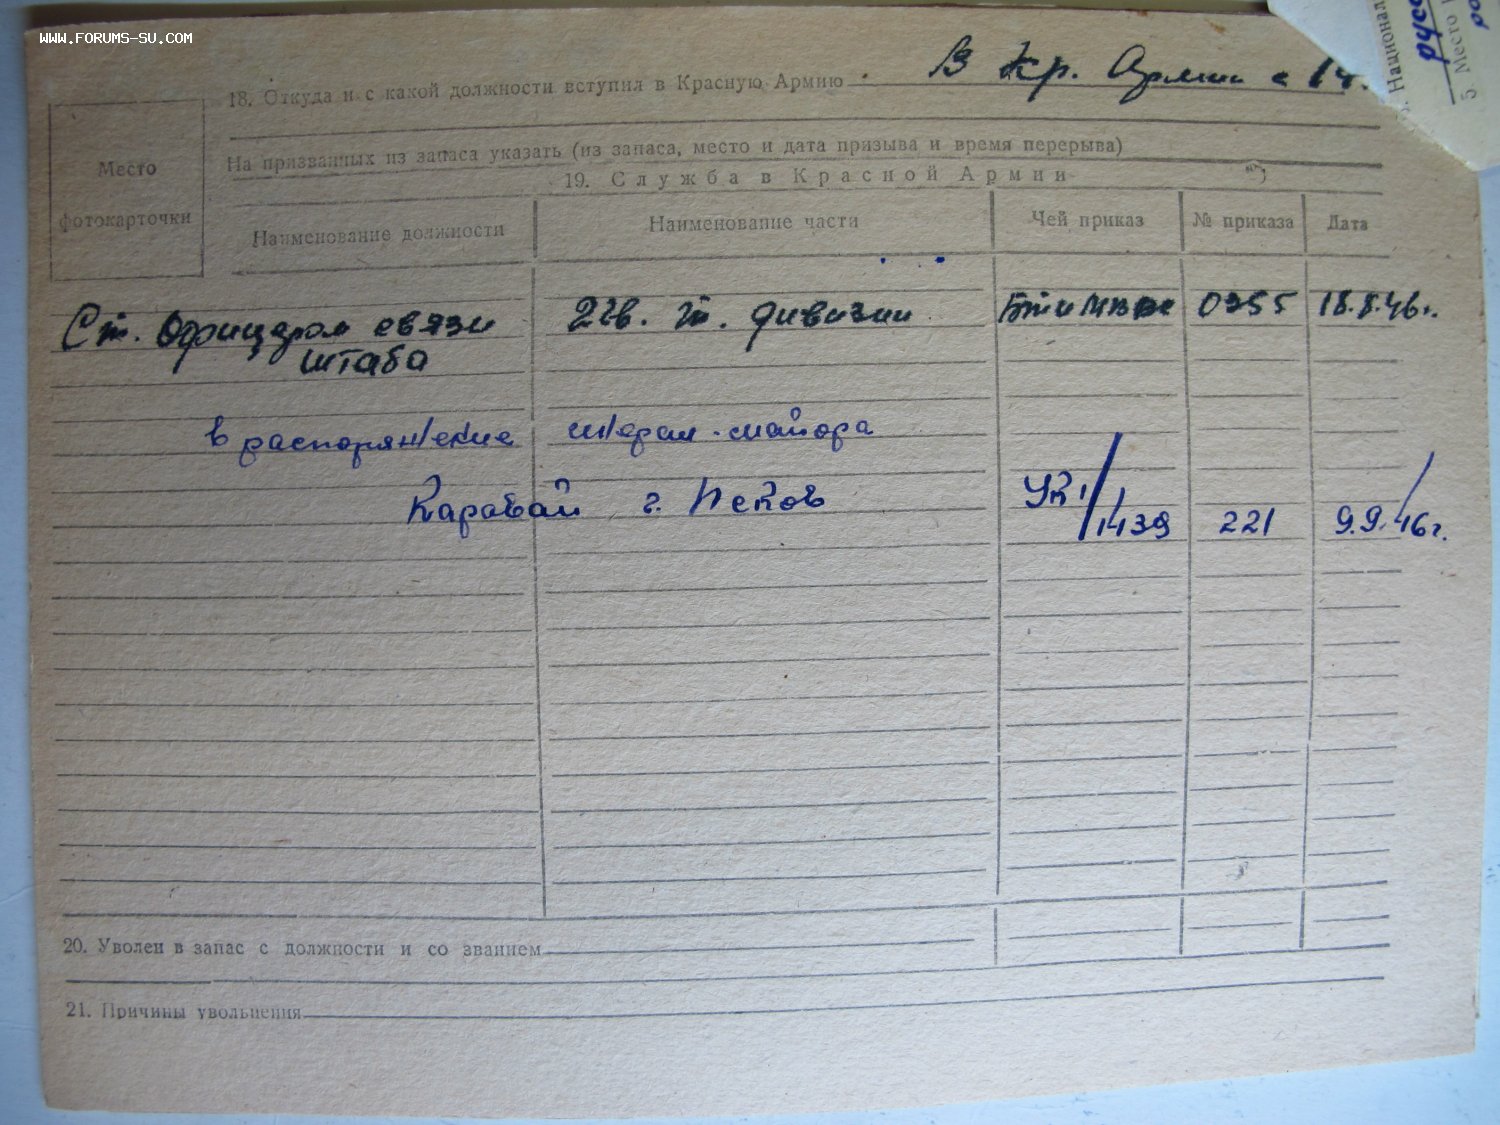 WWW.FORUMS-SU.COM
18. Откуда и с какой должности вступил в Красную Армию В Кр. Армии с 14.
На призванных из запаса указать (из запаса, место и дата призыва и время перерыва)
Место
фотокарточки
19. Служба в Красной Армии
Наименование должности Наименование части Чей приказ № приказа Дата
Ст. Офицером связи 2 гв. т. дивизии БТиМВ 0355 18.8.46г.
штаба
в распоряжение генерал-майора
Каравай г. Псков УК 1/1439 221 9.9.46г.
20. Уволен в запас с должности и со званием
21. Причины увольнения
. Национал
5. Место